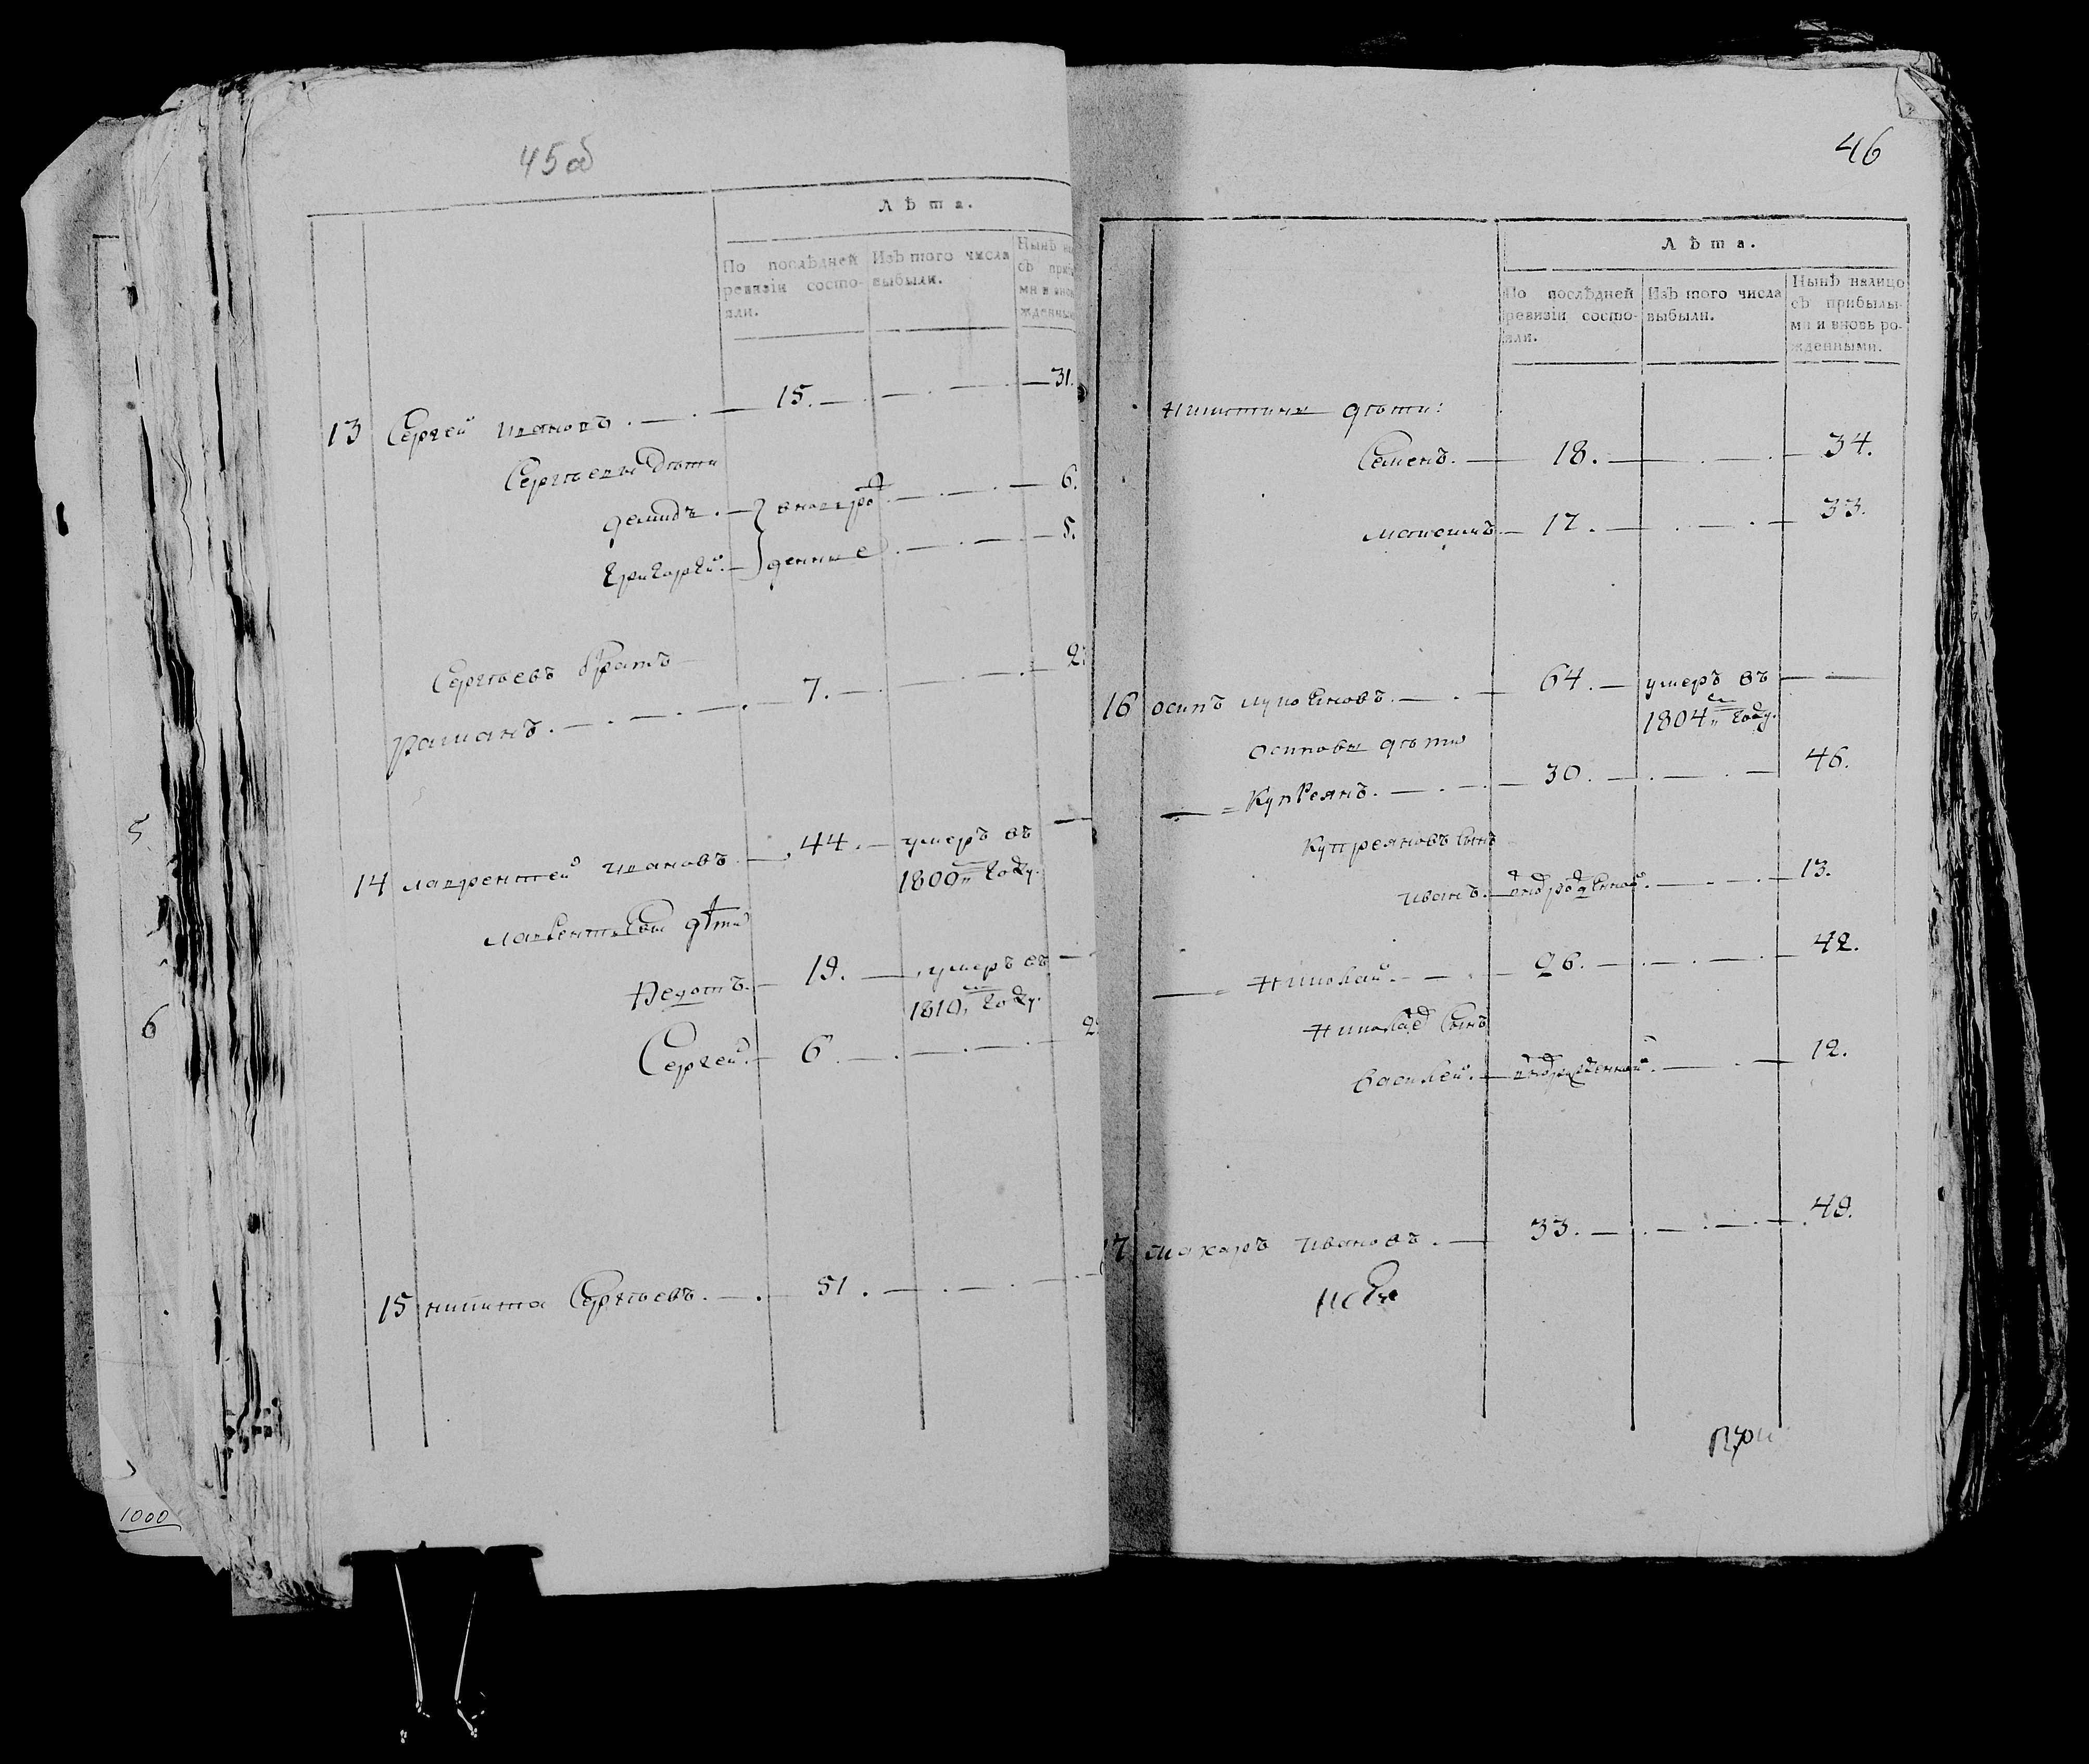 45об
Лѣта.
По послѣдней
ревизіи состо-
яли.
Изъ того числа
выбыли.
Нынѣ
съ при
ми и внов
жденным
13 Сергей Ивановъ. 15. 31.
Сергѣевы дѣти
Демидъ. вновьро 6.
Григорей. жденные 5.
Сергѣевъ братъ
Раманъ. 7. 2
14 Лаврентей Ивановъ 44. умеръ въ
1800м году.
Лаврентьевы дѣти
Федотъ. 19. умеръ въ
1810м году.
Сергей. 6. 2
15 Никита Сергѣевъ. 51.
5
6
1000
46
Лѣта.
По послѣдней
ревизіи состо-
яли.
Изъ того числа
выбыли.
Нынѣ налицо
съ прибылы-
ми и вновь ро-
жденными.
Никитины дѣти:
Семенъ. 18. 34.
Максимъ 17. 33.
16 Осипъ 64. умеръ въ
1804м году.
Осиповы дѣти
Купреянъ. 30. 46.
Купреяновъ сынъ
Иванъ. вновьрожденной. 13.
Николай. 26. 42.
Николаев сынъ
Василей. вновьрожденной. 12.
17 Макаръ Ивановъ. 33. 49.
При